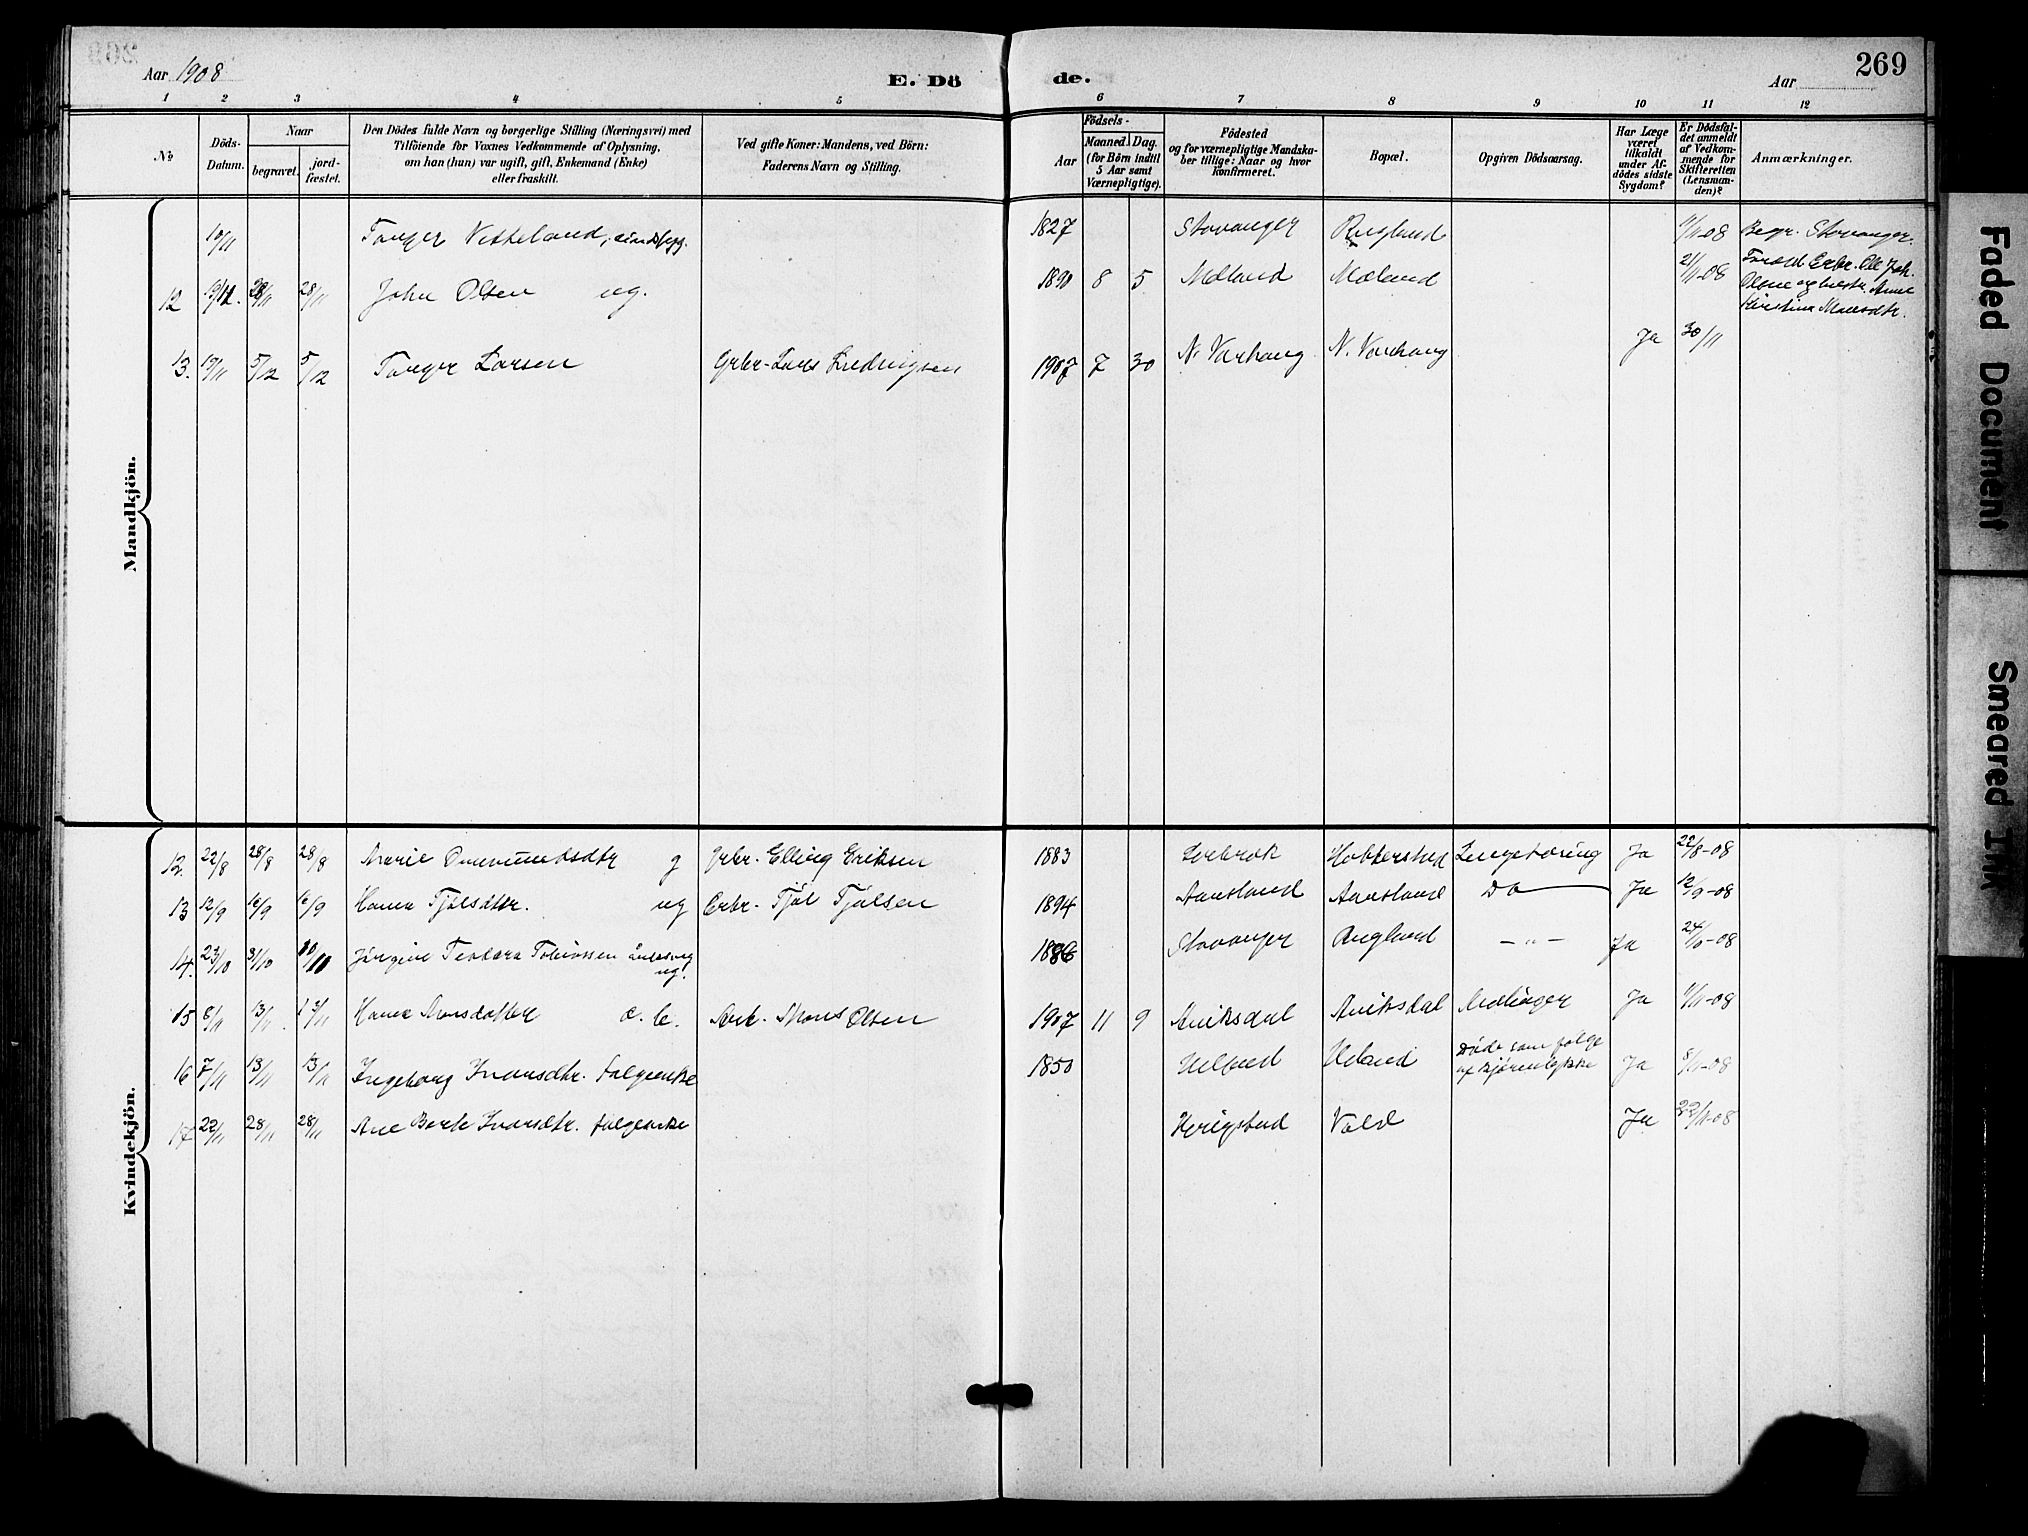 269
Aar 1908
E. Dö
de.
Aar
1 2 3 4 5 6 7 8 9 10 11 12
No
Döds-
Datum.
Naar
begravet.
jord-
fæstet.
Den Dödes fulde Navn og borgerlige Stilling (Næringsvei) med
Tilföiende for Voxnes Vedkommende af Oplysning,
om han (hun) var ugift, gift, Enkemand (Enke)
eller fraskilt.
Ved gifte Koner: Mandens, ved Börn:
Faderens Navn og Stilling.
Födsels-
Aar
Maaned. Dag.
(for Börn indtil
5 Aar samt
Værnepligtige).
Födested
og for værnepligtige Mandska-
ber tillige: Naar og hvor
konfirmeret.
Bopæl.
Opgiven Dödsaarsag.
Har Læge
været
tilkaldt
under Af-
dödes sidste
Sygdom?
Er Dödsfal-
det anmeldt
af Vedkom-
mende for
Skifteretten
(Lensman-
den)?
Anmærkninger.
Mandkjön.
10/11 Torger Vetteland, 1827 Stavanger Rugland 11/11-08 Begr. Stavanger.
12 28/11 28/11 John Olsen ug. 1890 8 5 Mæland Mæland 21/11-08
13. 19/11 5/12 5/12 Torger Larsen Grbr. Lars Fredrigsen 1907 7 30 N. Varhaug N. Varhaug Ja 30/11
Kvindekjön.
12. 22/8 28/8 28/8 Marie g Grbr. Elling Eriksen 1883 Hobberstad Ja 22/8-08
13 12/9 16/9 16/9 Hanna Tjølsdtr. ug Grbr. Tjøl Tjølsen 1894 Aansland Aansland Do Ja 12/9-08
14. 23/10 31/10 Jørgine Teodora Tobiassen
ug. Stavanger Ja 24/10-08
15 8/11 13/11 13/11 Hanna Monsdatter Mons Olsen 1907 11 9 Aniksdal Aniksdal Ja 11/11-08
16 7/11 13/11 13/11 Ingeborg Ivarsdtr. Folgeenke 1850 Ueland Døde som følge
af Ja 8/11-08
17 22/11 28/11 28/11 Ane Berte Ivarsdtr. folgeenke Herigstad Ja 22/11-08
Faded Document
Smeared Ink